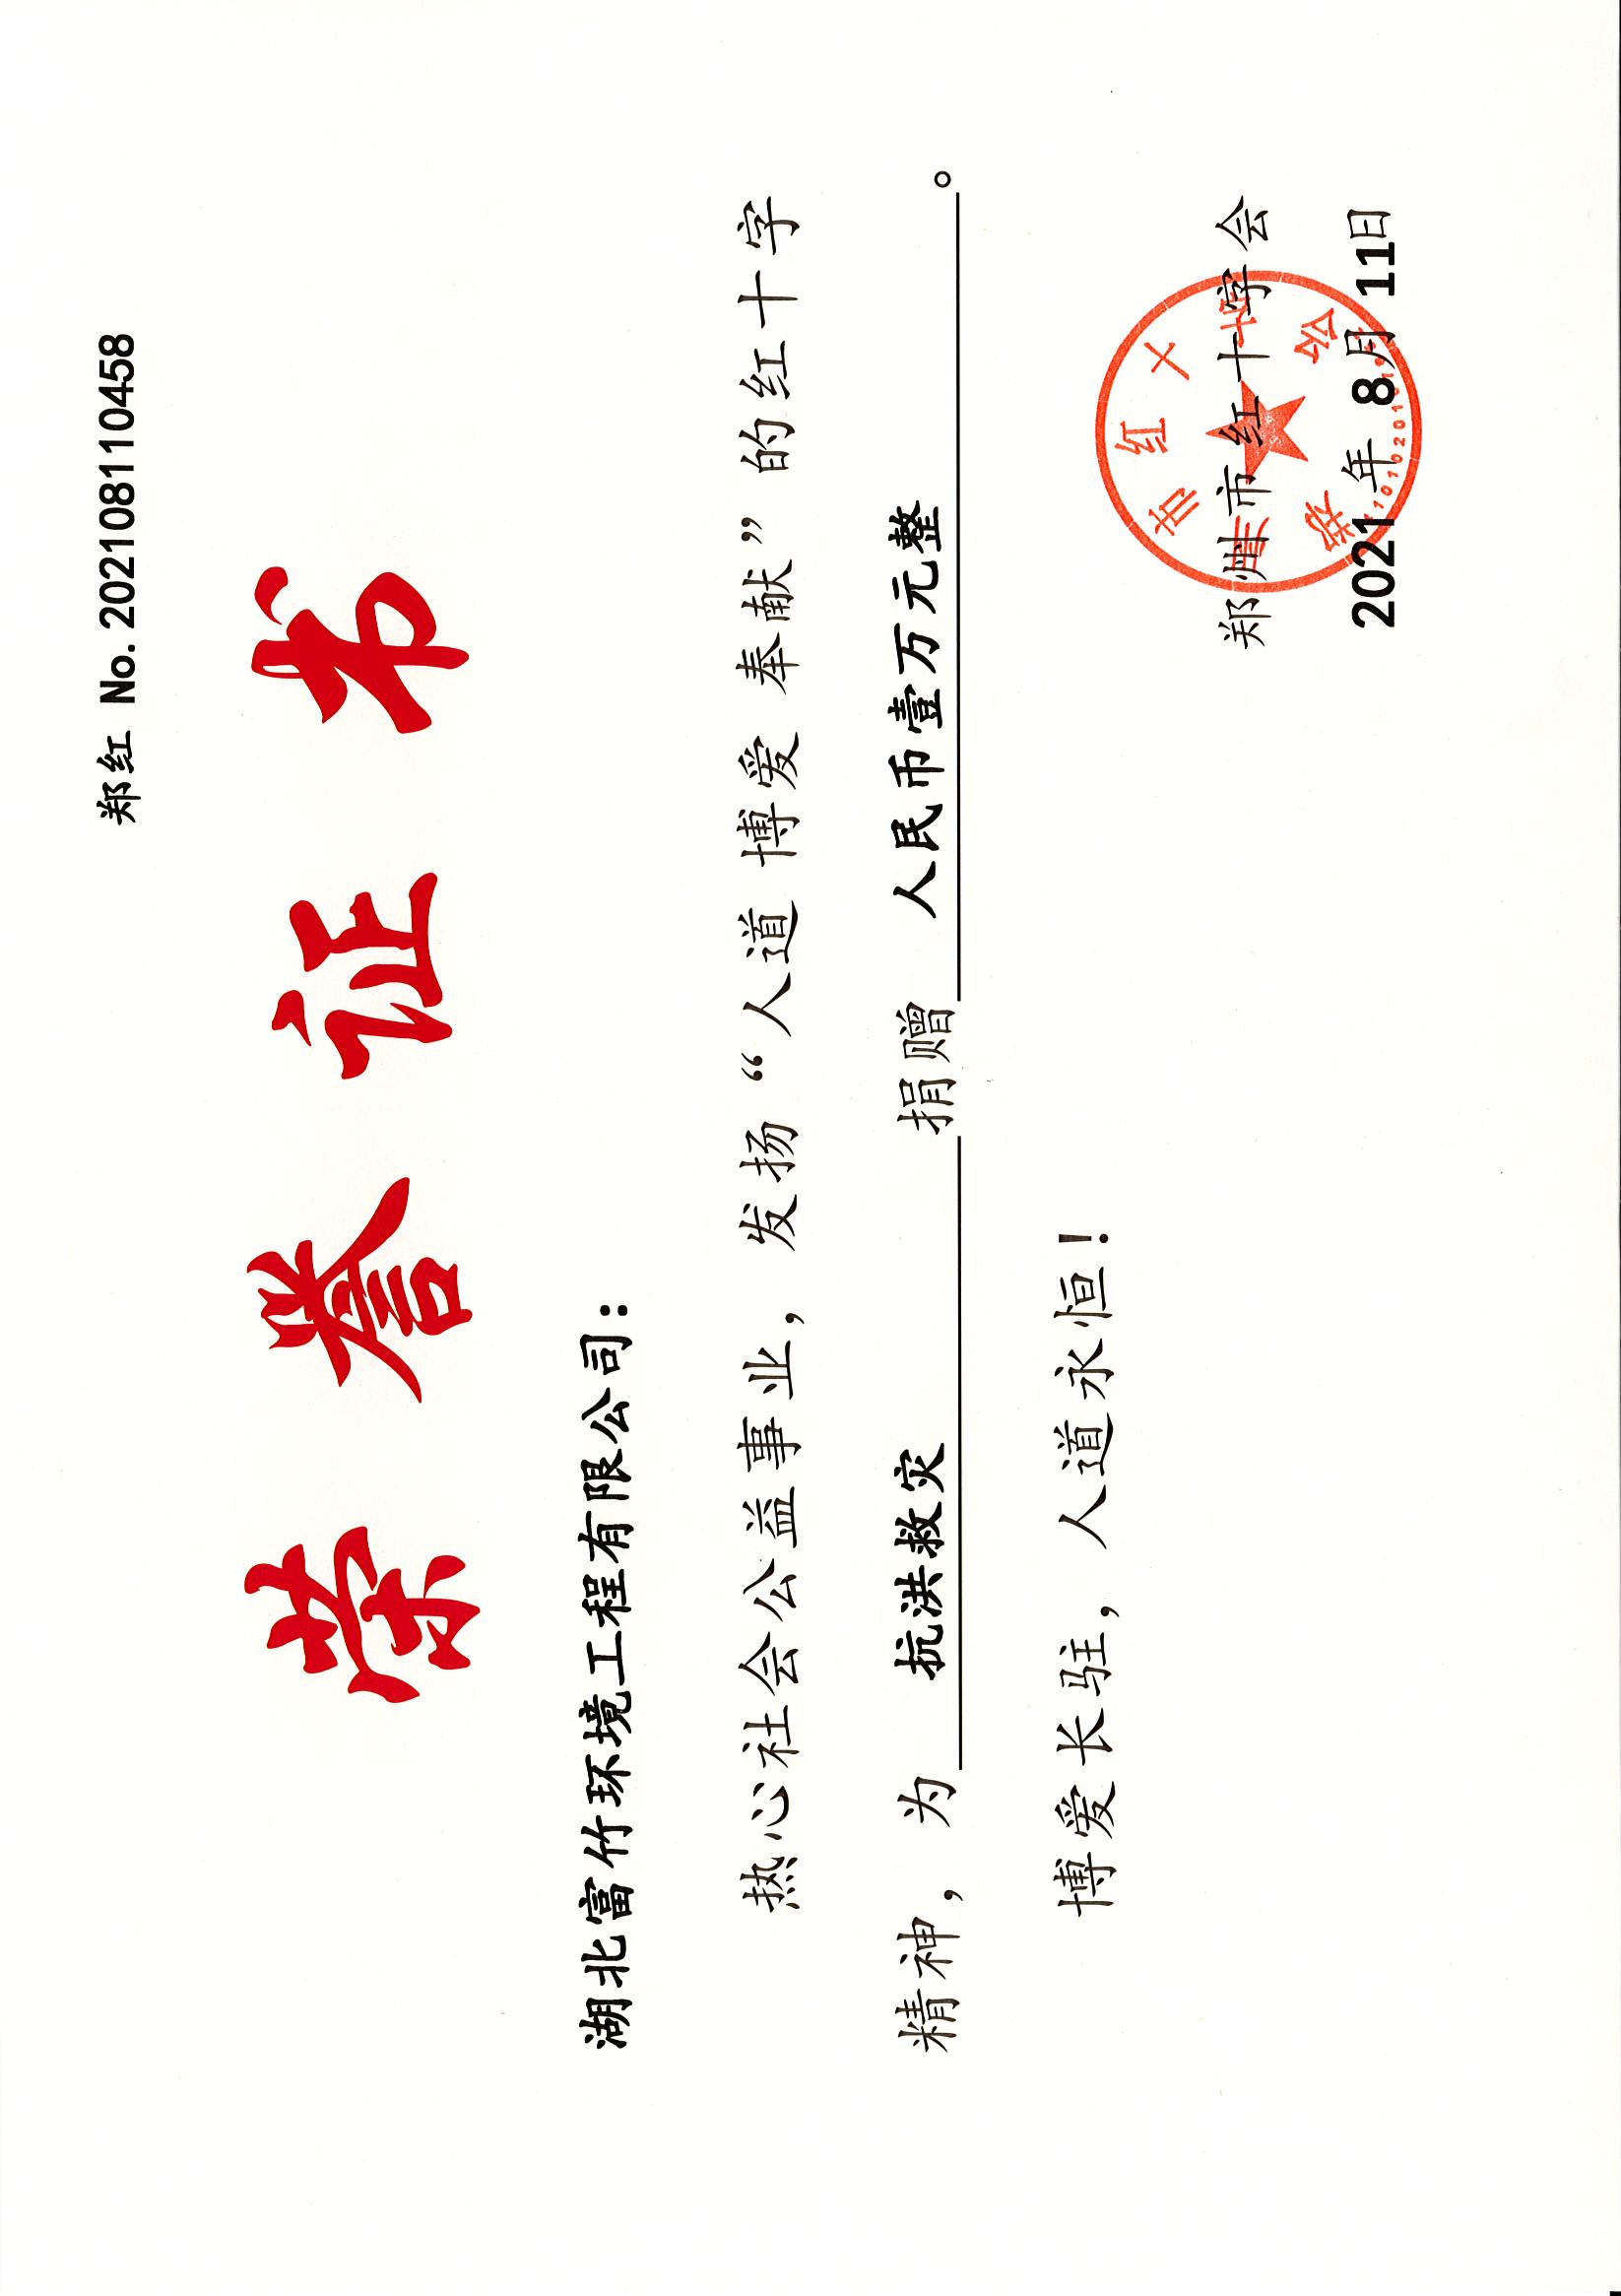 郑红 No. 202108110458
荣誉证书
湖北富竹环境工程有限公司：
热心社会公益事业，发扬“人道 博爱 奉献”的红十字
精神，为 抗洪救灾 捐赠 人民币壹万元整 。
博爱长驻，人道永恒！
郑州市红十字会
2021 年 8月 11日
郑州市红十字会